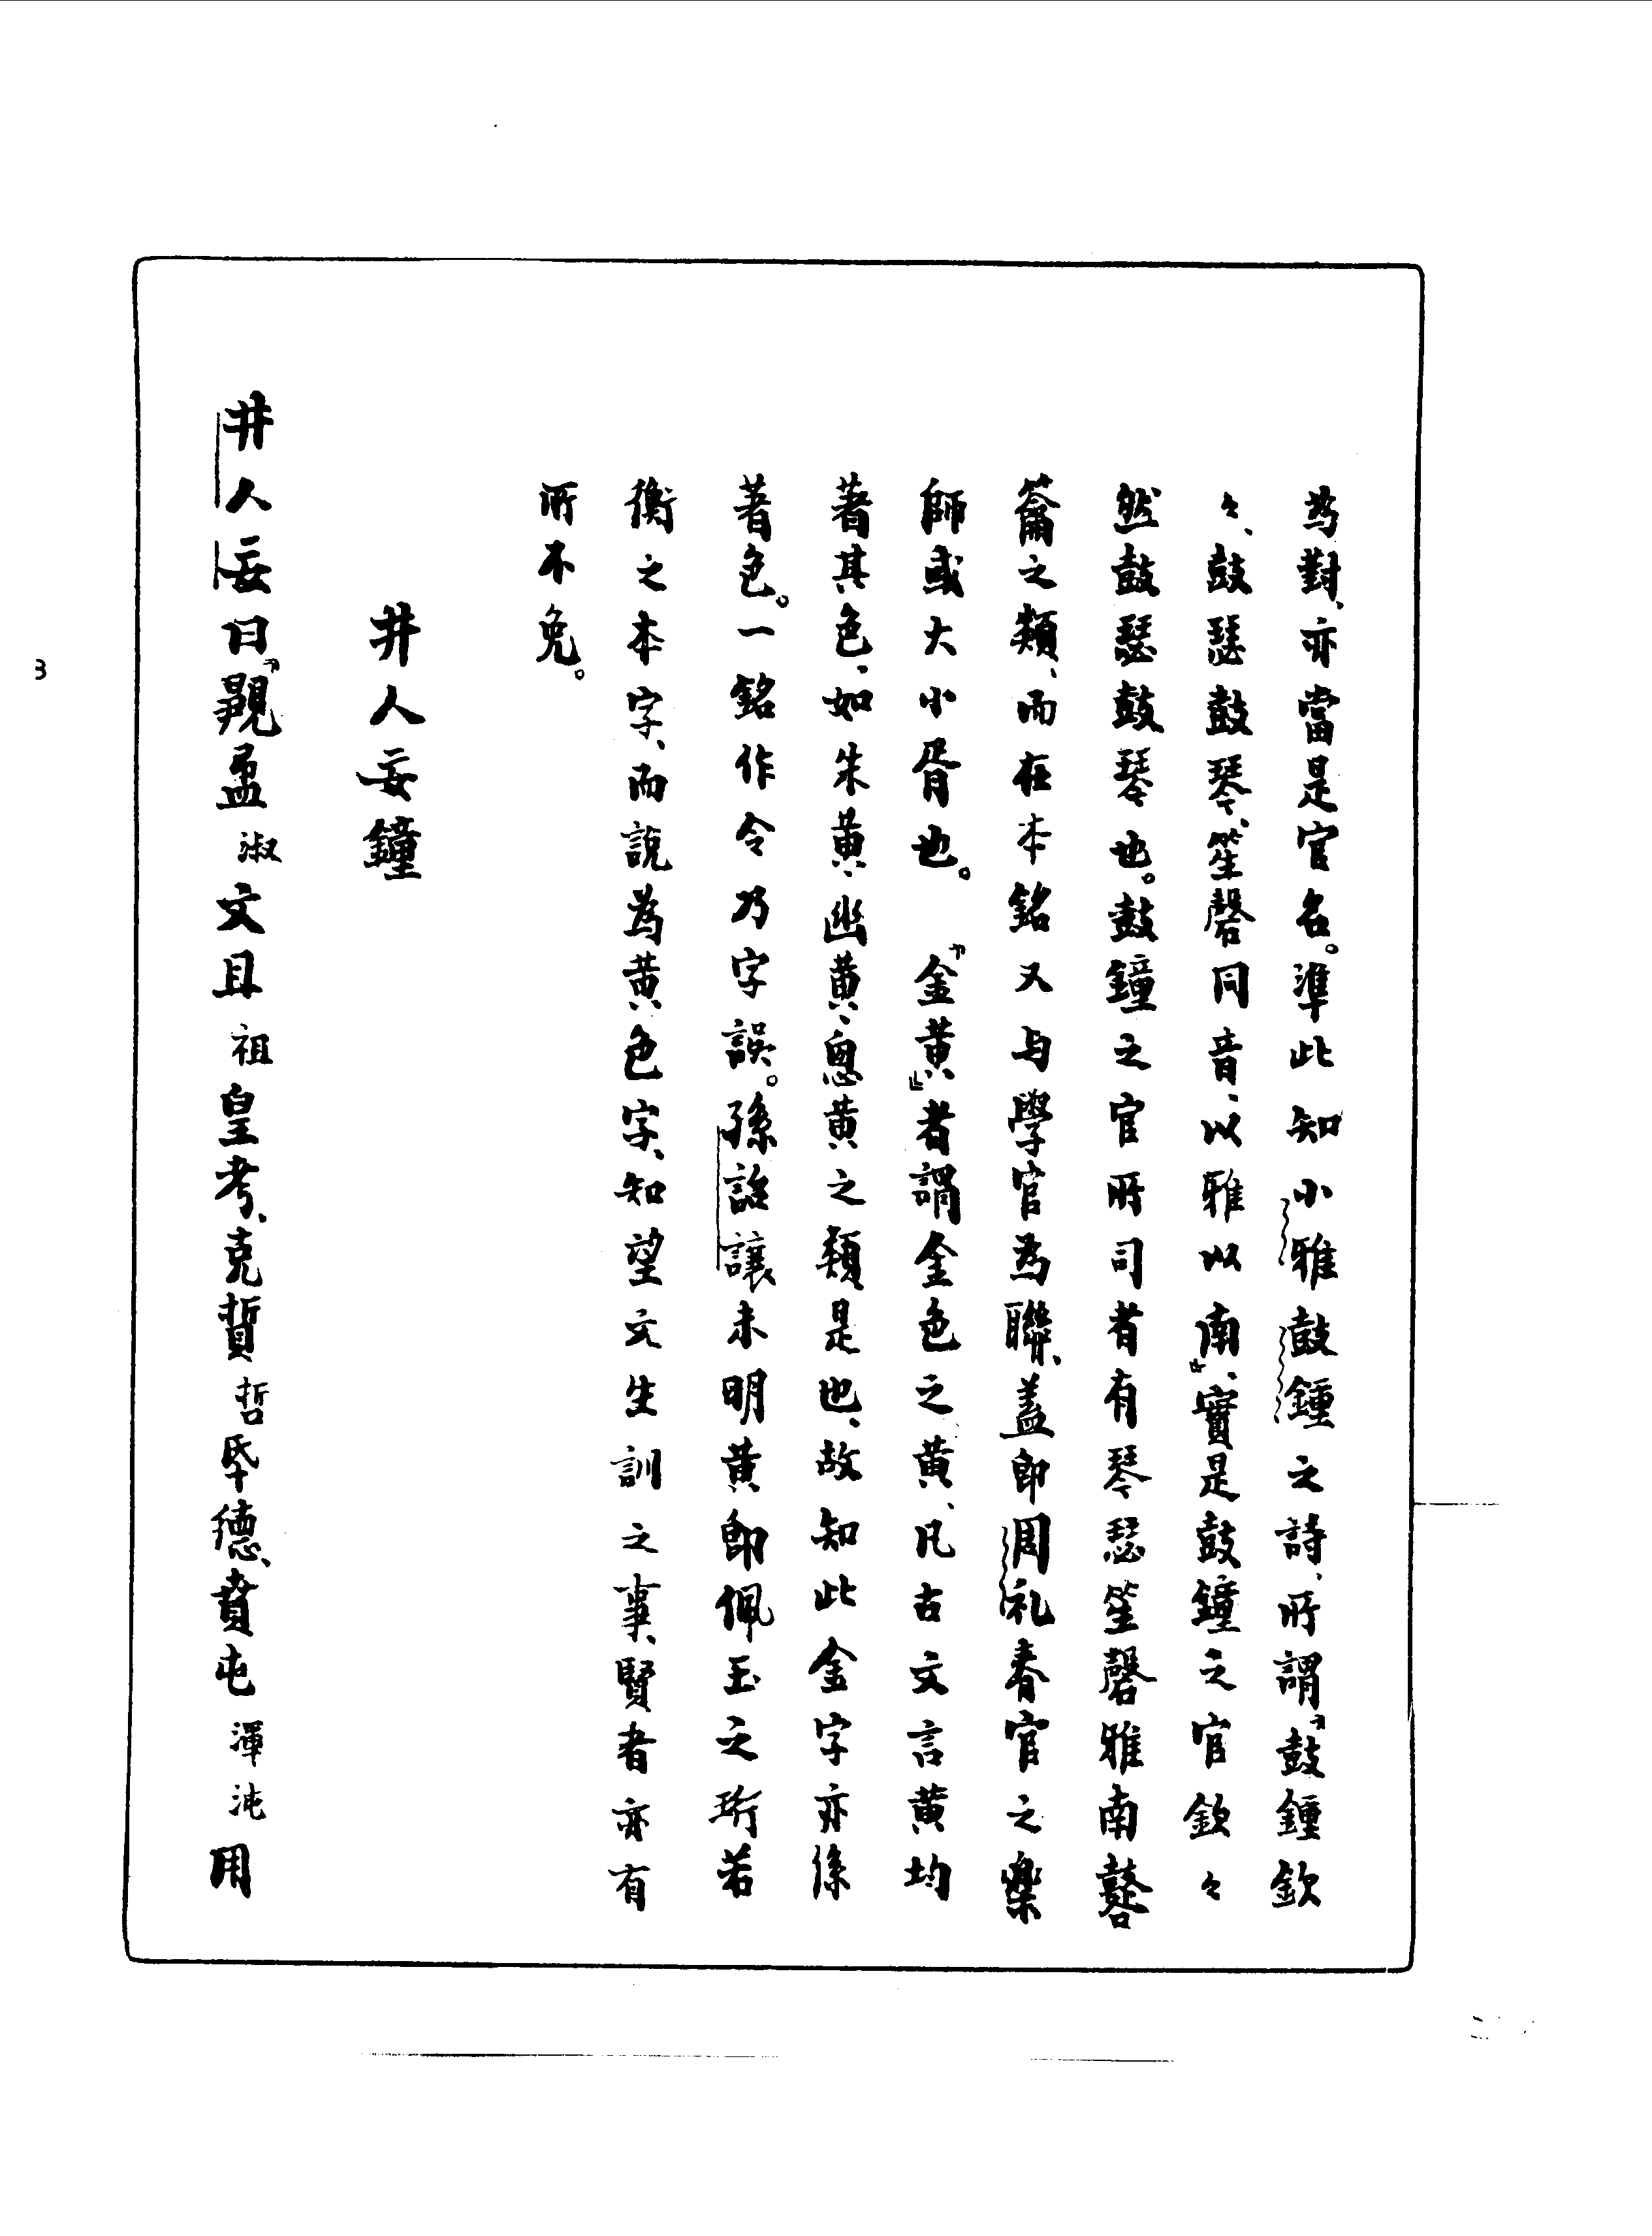 為對、亦當是官名。準此知小雅鼓鍾之詩、所謂『鼓鍾欽
々、鼓瑟鼓琴、笙磬同音、以雅以南』、實是鼓鐘之官欽々
然鼓瑟鼓琴也。鼓鐘之官所司者有琴瑟笙磬雅南鼛
籥之類、而在本銘又与學官為聯、蓋即周礼春官之樂
師或大小胥也。『金黃』者謂金色之黃、凡古文言黃均
著其色、如朱黃、幽黃、悤黃之類是也、故知此金字亦係
著色。一銘作令乃字誤。孫詒讓未明黃即佩玉之珩若
衡之本字、而說為黃色字、知望文生訓之事、賢者亦有
所不免。
井人妄鐘
井人妄曰『盄淑文且祖皇考、克質哲氒德、賁屯渾沌用
3